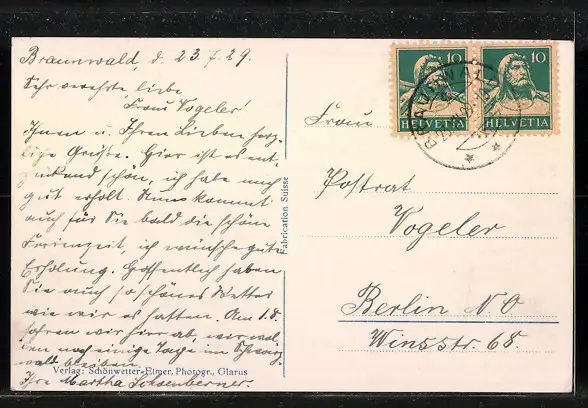 Braunwald, d. 23.7.29.
Sehr verehrte liebe
Frau Vogeler!
Ihnen u. Ihren Lieben herz-
liche Grüße. Hier ist es ent-
zückend schön, ich habe mich
gut erholt. Nun kommt
auch für Sie bald die schöne
Ferienzeit, ich wünsche gute
Erholung. Hoffentlich haben
Sie auch so schönes Wetter
wie wir es hatten. Am 1.8.
fahren wir hier ab, wir wol-
len noch einige Tage im Schwarz-
wald bleiben.
Ihre Martha Schoenberner.
Verlag: Schönwetter-Elmer, Photogr., Glarus
Fabrication Suisse
10 10
HELVETIA HELVETIA
BRAUNWALD
Frau
Postrat
Vogeler
Berlin NO
Winsstr. 68.